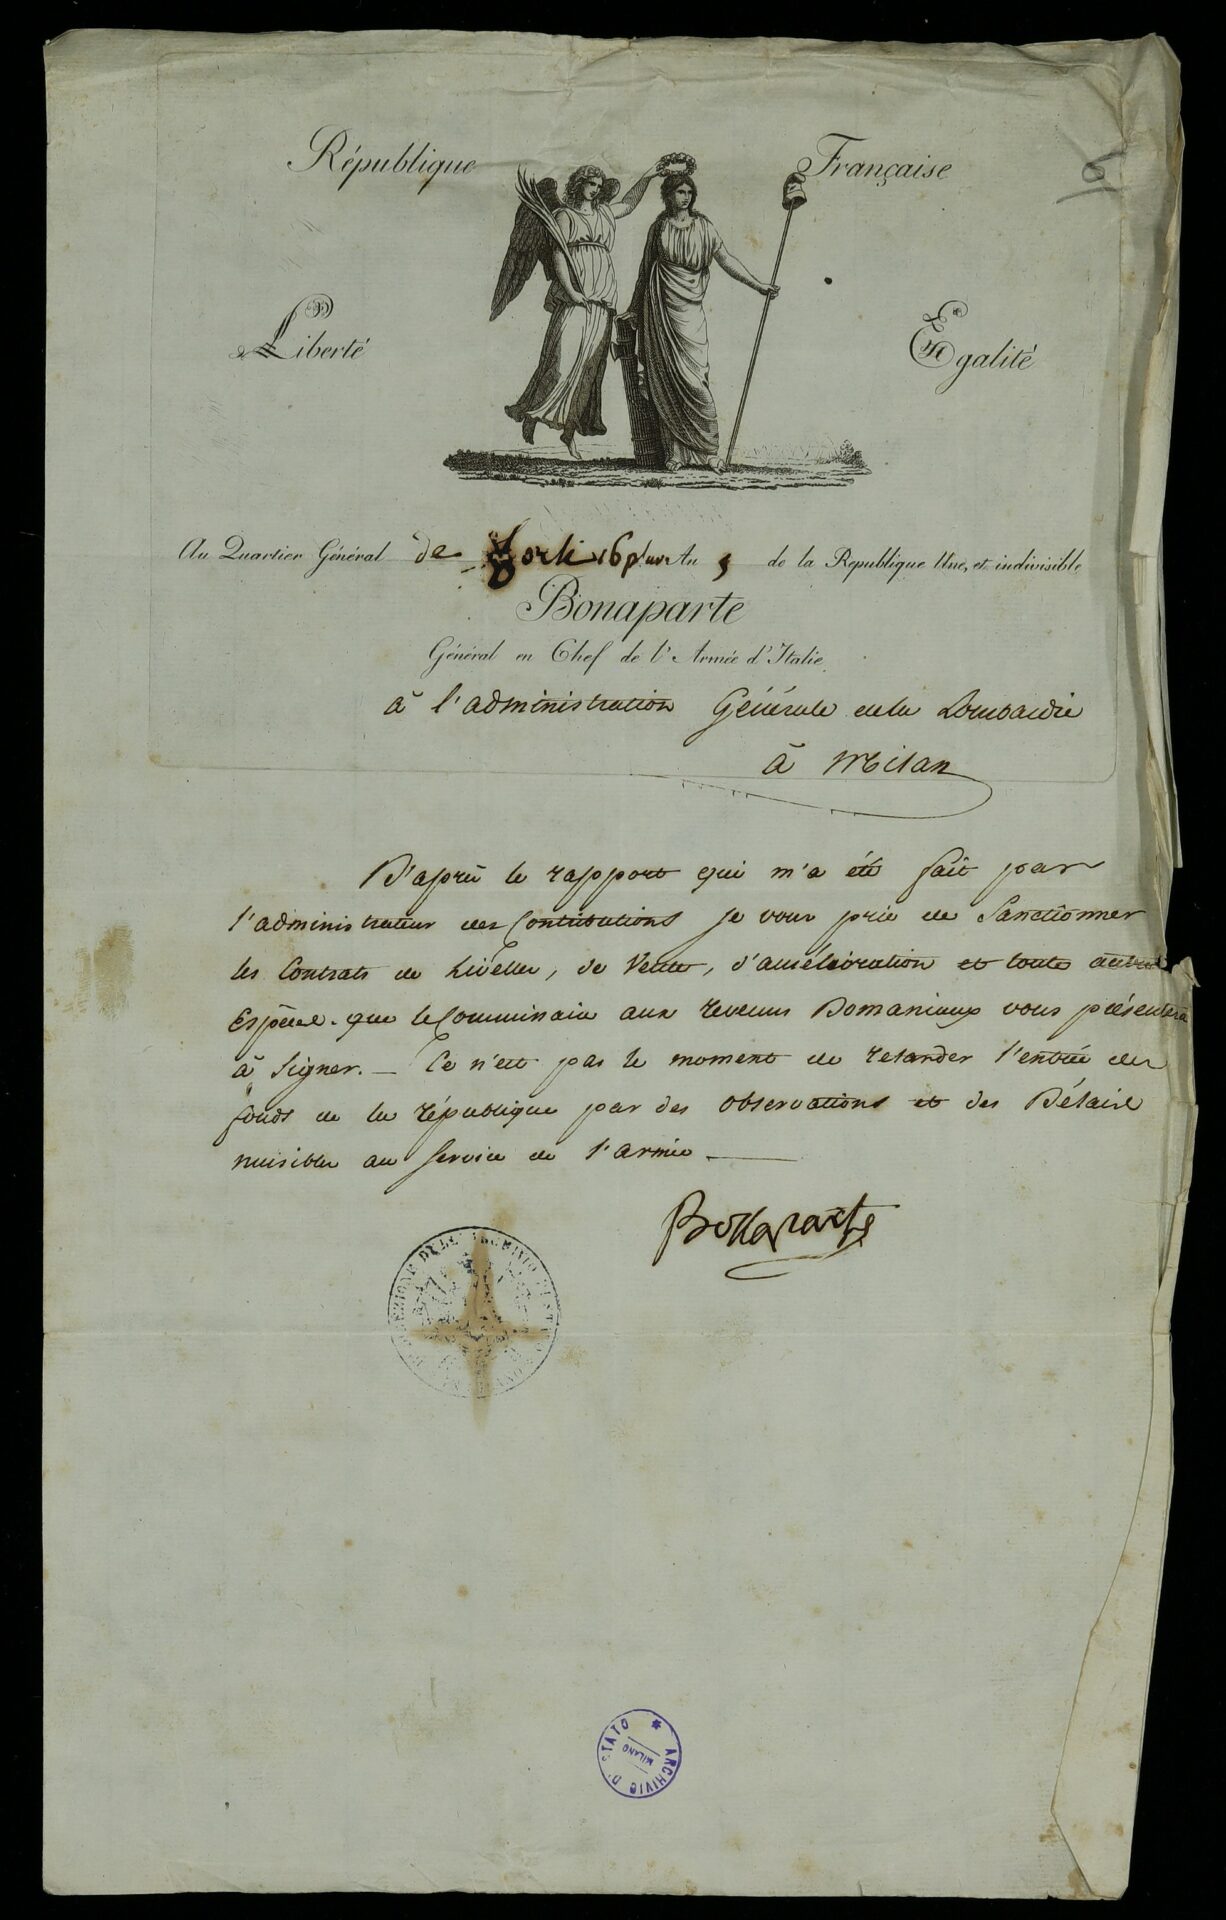 République Française
Liberté Egalité
Au Quartier Général de Forli 16 pluv. An 5 de la Republique Une, et indivisible
Bonaparte
Général en Chef de l'Armée d'Italie.
à l'administration Générale de la Lombardie
à Milan
D'après le rapport qui m'a été fait par
l'administrateur des Contributions je vous prie de Sanctionner
les Contrats de Livelles, de Vente, d'amélioration et toute autre
Espèce que le Commissaire aux revenus Domaniaux vous présentera
à Signer. — Ce n'est pas le moment de retarder l'entrée des
fonds de la république par des observations et des Délais
nuisibles au Service de l'armée —
Bonaparte
ARCHIVIO D' STATO
MILANO